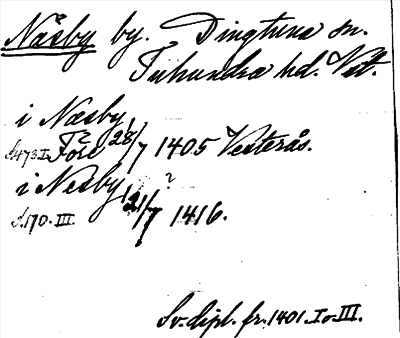 Näsby by. Dingtuna sn.
Tuhundra hd. Vstl.
i Næsby,
S. 473. I. Före 28/7 1405 Vesterås.
i Nesby, 21/7 ? 1416.
S. 170. III.
Sv. dipl. fr. 1401. I o. III.